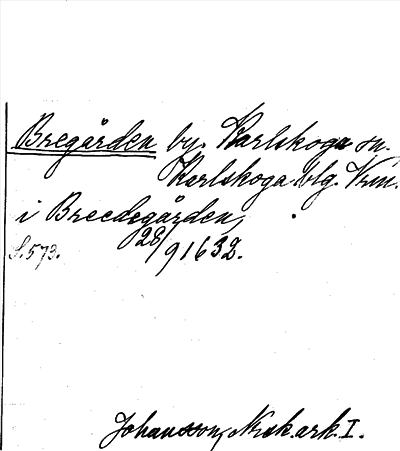 Bregården by. Karlskoga sn.
Karlskoga blg. Vrm.
i Breedegården,
S. 573. 28/9 1632.
Johansson, Nsk.ark. I.